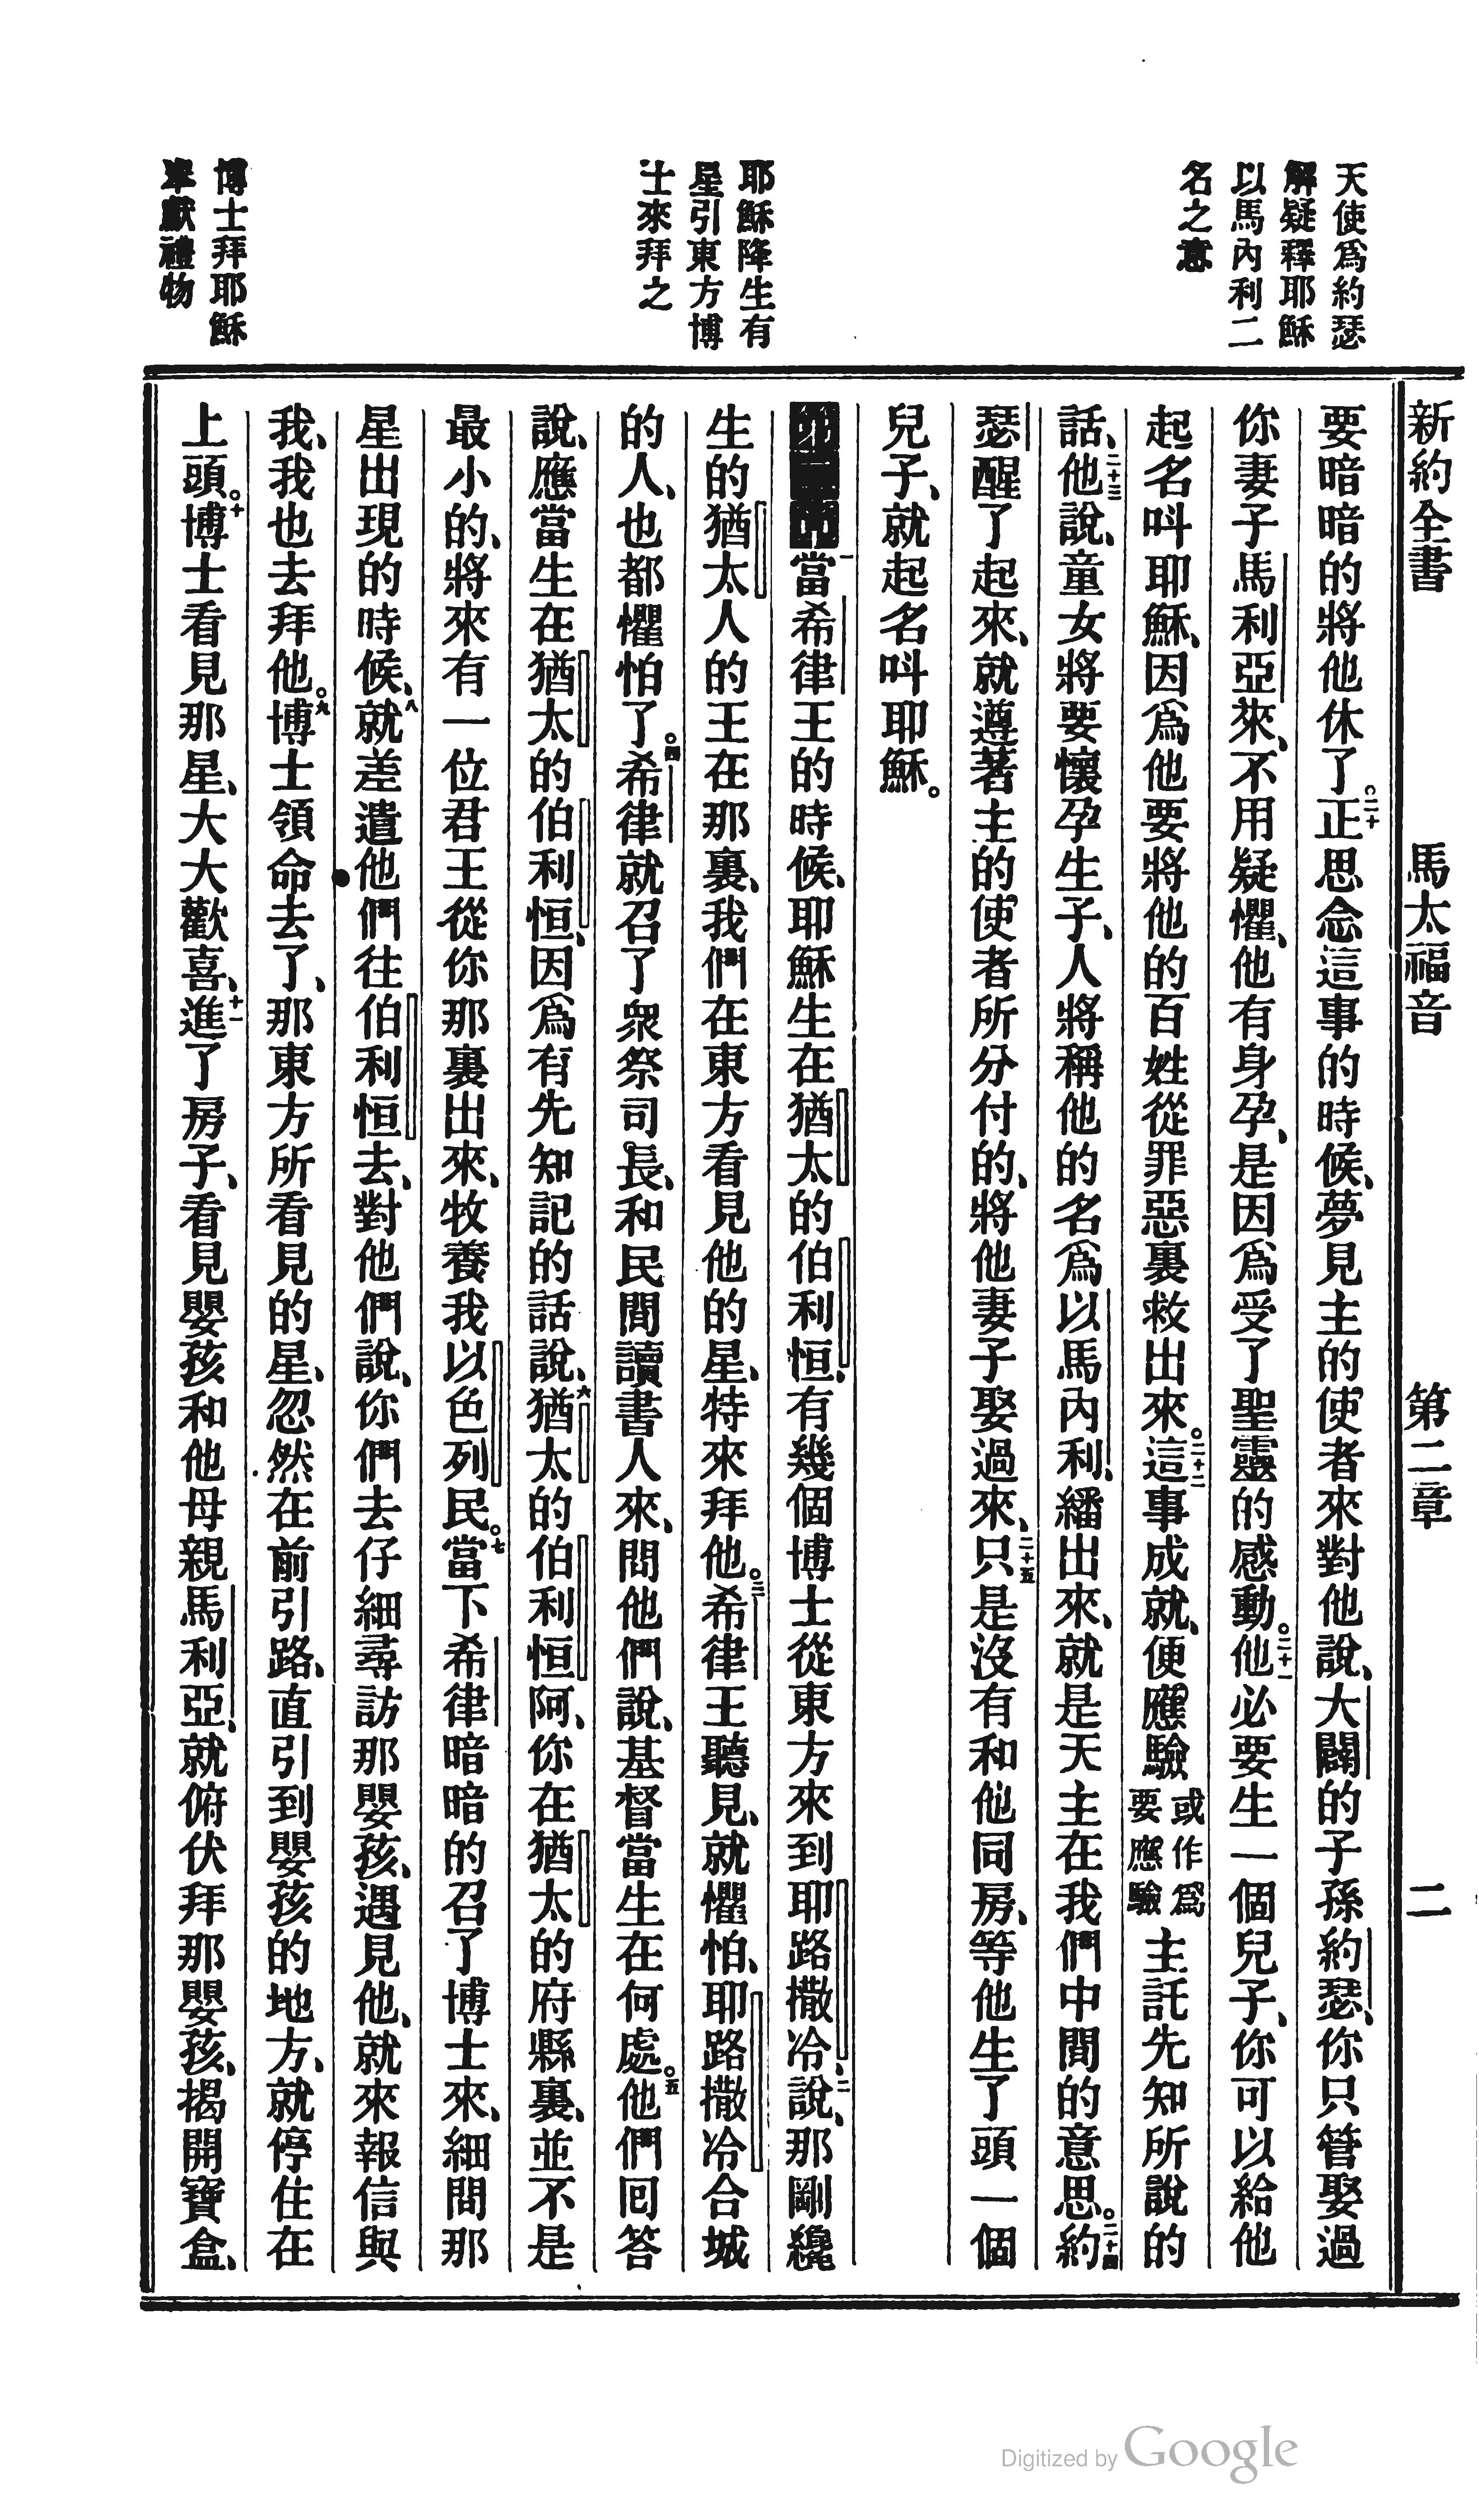 新約全書 馬太福音 第二章 二
天使爲約瑟
解疑釋耶穌
以馬內利二
名之意
耶穌降生有
星引東方博
士來拜之
博士拜耶穌
獻禮物
要暗暗的將他休了。二十正思念這事的時候、夢見主的使者來對他說、大闢的子孫約瑟、你只管娶過
你妻子馬利亞來、不用疑懼、他有身孕、是因爲受了聖靈的感動。二十一他必要生一個兒子、你可以給他
起名呌耶穌、因爲他要將他的百姓從罪惡裏救出來。二十二這事成就、便應驗或作爲要應驗主託先知所說的
話、二十三他說、童女將要懷孕生子、人將稱他的名爲以馬內利、繙出來、就是天主在我們中間的意思。二十四約
瑟醒了起來、就遵著主的使者所分付的、將他妻子娶過來、二十五只是沒有和他同房、等他生了頭一個
兒子、就起名呌耶穌。
一當希律王的時候、耶穌生在猶太的伯利恒、有幾個博士從東方來到耶路撒冷、二說、那剛纔
生的猶太人的王在那裏、我們在東方看見他的星、特來拜他。三希律王聽見、就懼怕、耶路撒冷合城
的人、也都懼怕了。四希律就召了衆祭司長、和民間讀書人來、問他們說、基督當生在何處。五他們回答
說、應當生在猶太的伯利恒、因爲有先知記的話說、六猶太的伯利恒阿、你在猶太的府縣裏、並不是
最小的、將來有一位君王從你那裏出來、牧養我以色列民。七當下希律暗暗的召了博士來、細問那
星出現的時候、八就差遣他們往伯利恒去、對他們說、你們去仔細尋訪那嬰孩、遇見他、就來報信與
我、我也去拜他。九博士領命去了、那東方所看見的星、忽然在前引路、直引到嬰孩的地方、就停住在
上頭。十博士看見那星、大大歡喜、十一進了房子、看見嬰孩和他母親馬利亞、就俯伏拜那嬰孩、揭開寶盒、
Digitized by Google